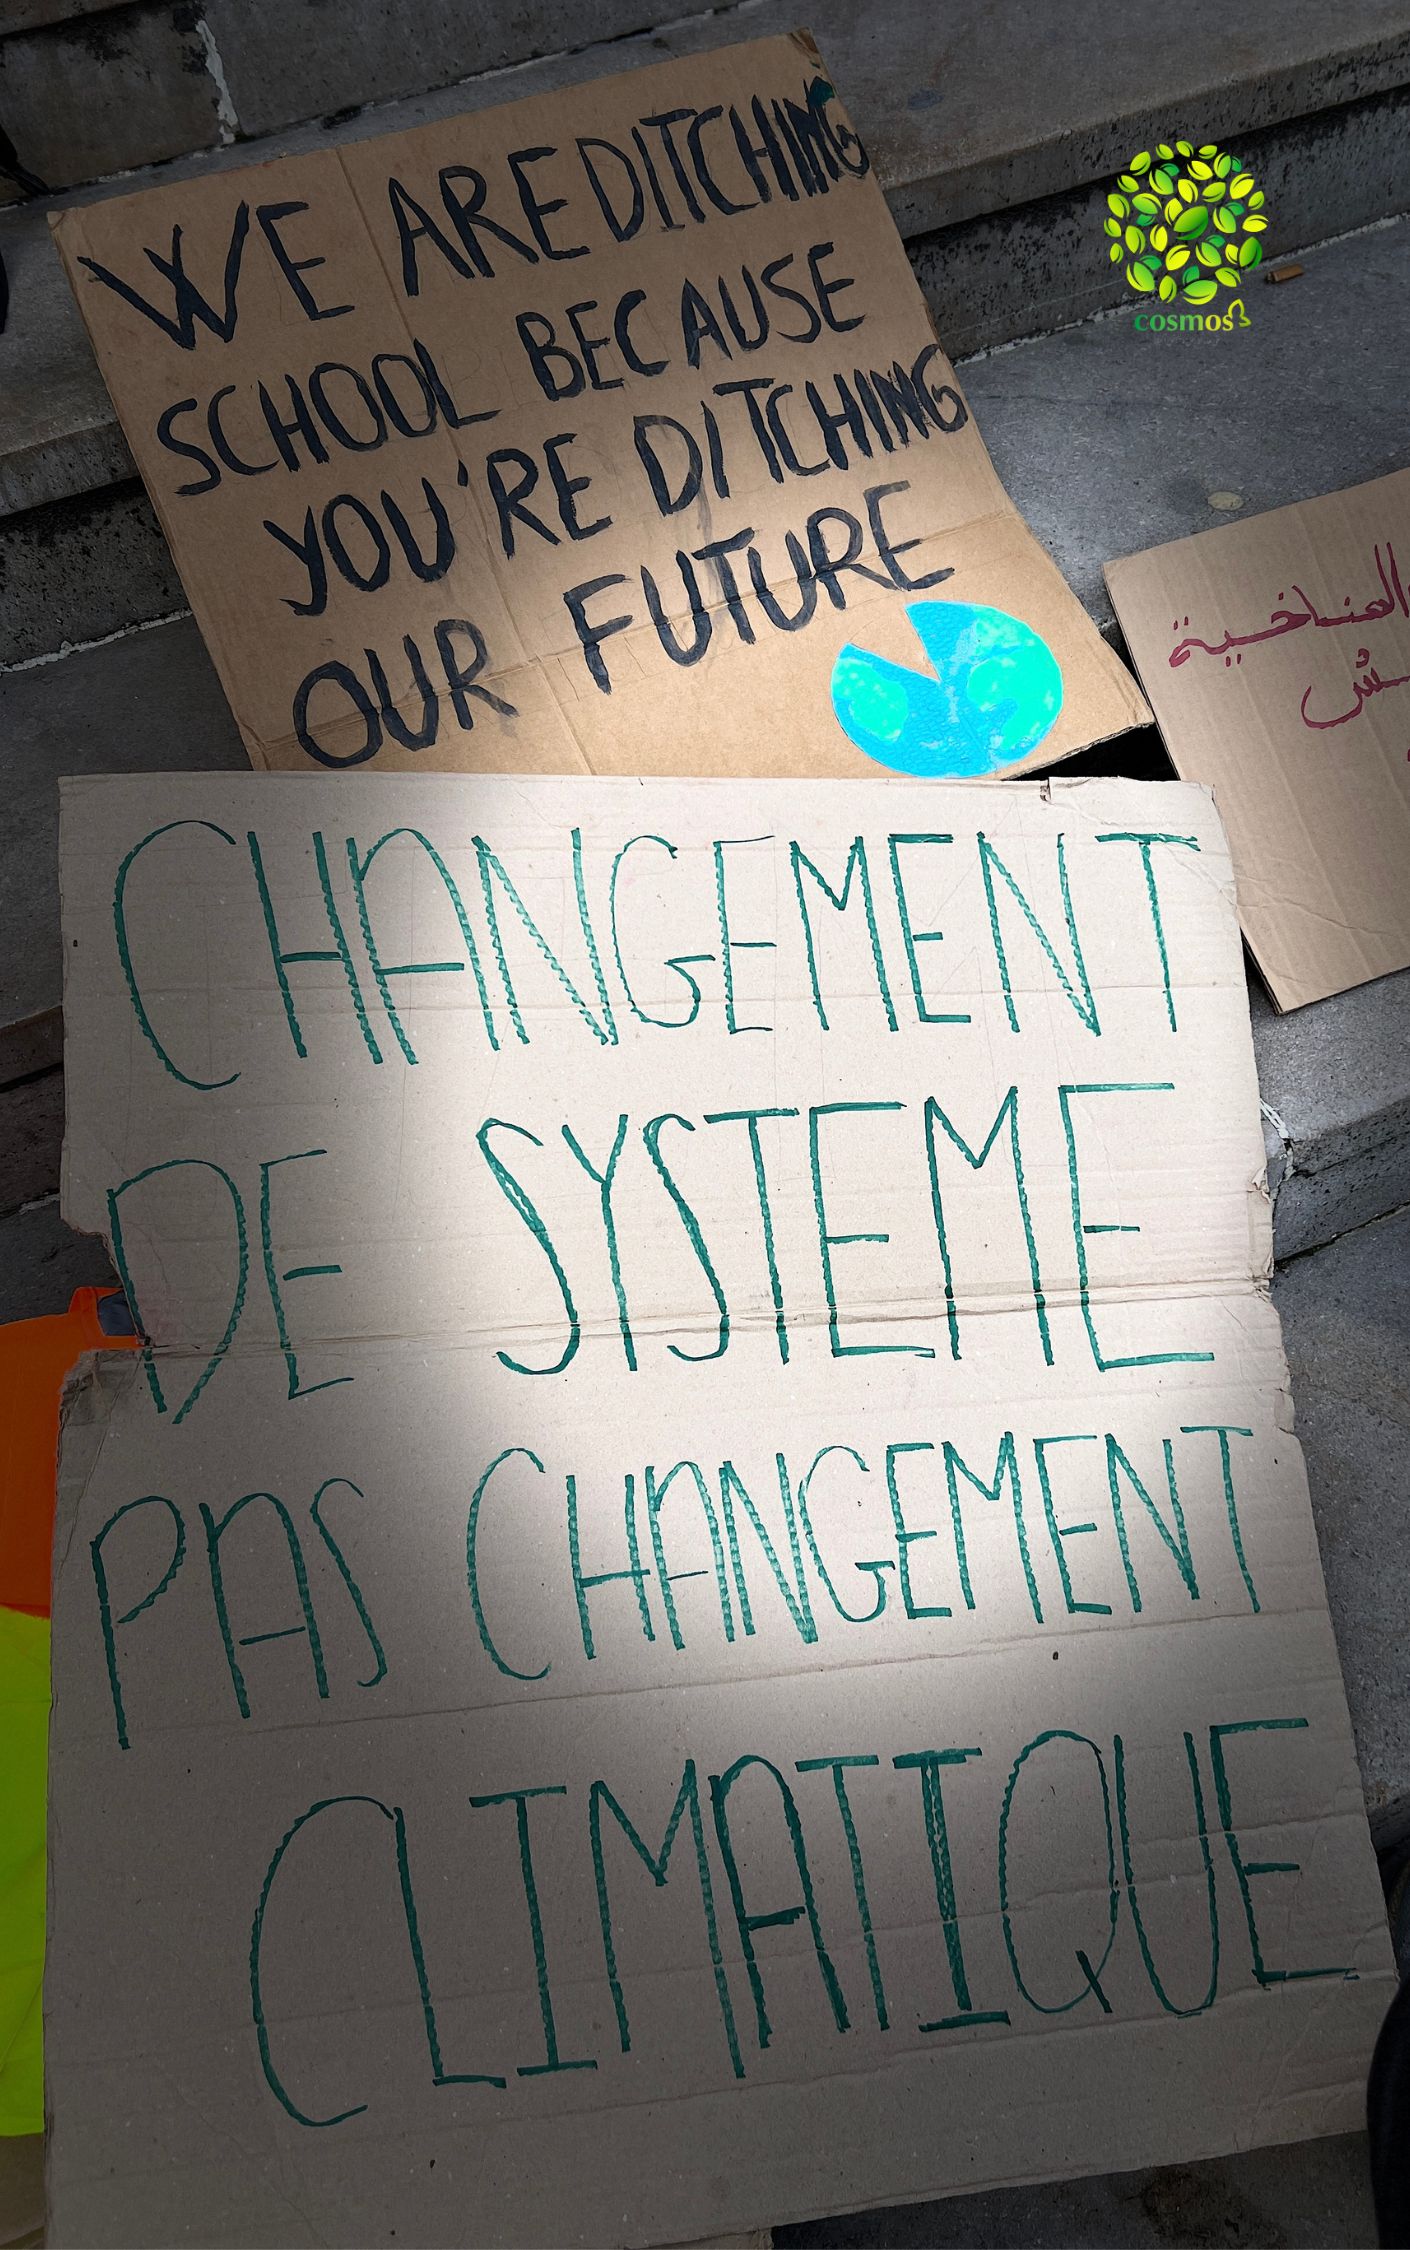 WE ARE DITCHING
SCHOOL BECAUSE
YOU'RE DITCHING
OUR FUTURE
cosmos
المناخية
CHANGEMENT
DE SYSTEME
PAS CHANGEMENT
CLIMATIQUE